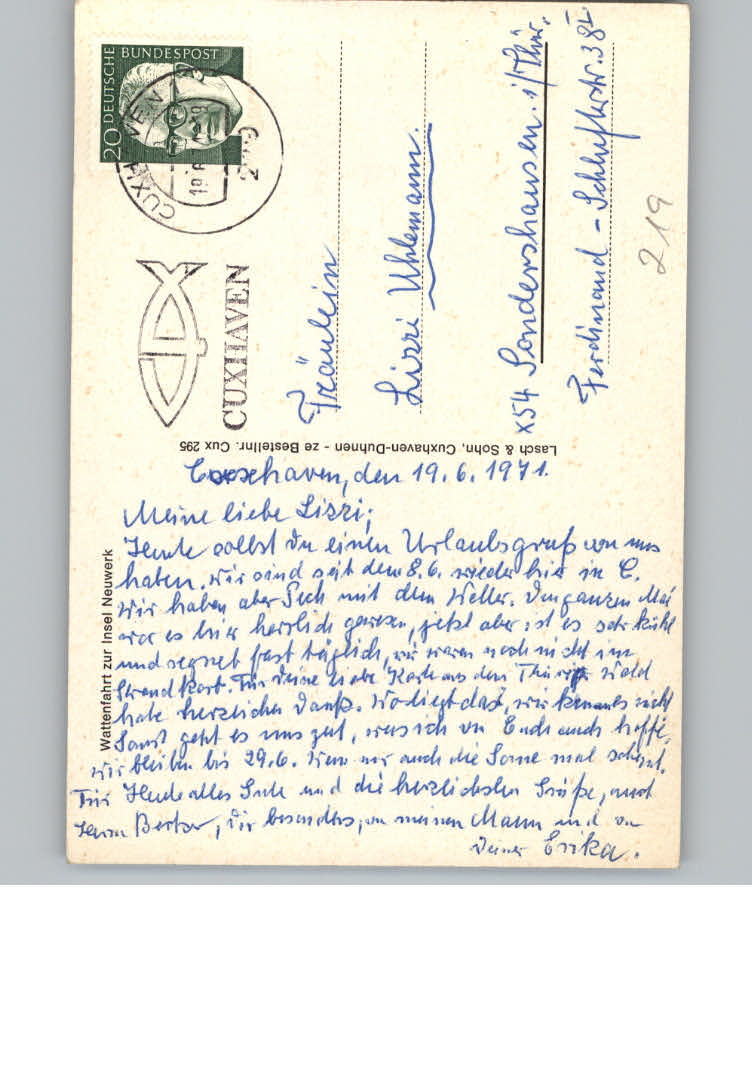 DEUTSCHE BUNDESPOST
20
CUXHAVEN
CUXHAVEN
Fräulein
Lizzi Uhlemann.
x54 Sondershausen. i/Thür.
Ferdinand-Schlufterstr. 38 I.
219
Lasch & Sohn, Cuxhaven-Duhnen - ze Bestellnr. Cux 295
Wattenfahrt zur Insel Neuwerk
Cuxhaven, den 19.6.1971.
Meine liebe Lizzi,
Heute sollst du einen Urlaubsgruß von uns
haben. Wir sind seit dem 8.6. wieder hier in C.
Wir haben aber Pech mit dem Wetter. Im ganzen Mai
war es hier herrlich gewesen, jetzt aber ist es sehr kühl
und regnet fast täglich, wir waren noch nicht im
Strandkorb. Für Deine liebe Karte aus dem Thür. Wald
habe herzlichen Dank. Wo liegt das, wir kennen es nicht
Sonst geht es uns gut, was ich von Euch auch hoffe.
Wir bleiben bis 29.6. Wenn nur auch die Sonne mal scheint.
Für Heute alles Gute und die herzlichsten Grüße, auch
Herrn Becker, Dir besonders, von meinem Mann und von
Deiner Erika.